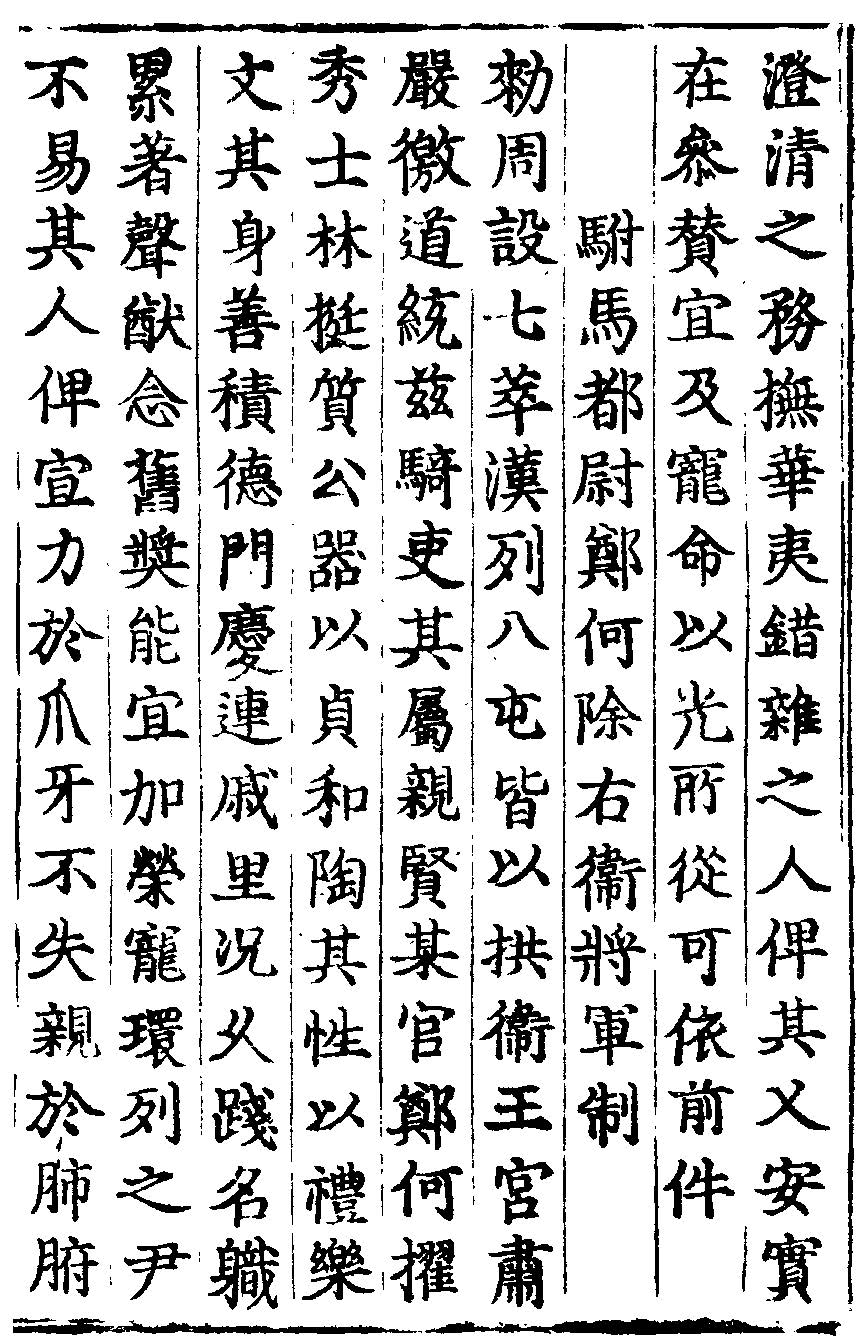 澄清之務撫華夷錯雜之人俾其乂安實
在叅賛宜及寵命以光所從可依前件
駙馬都尉鄭何除右衞將軍制
勑周設七萃漢列八屯皆以拱衞王宮肅
嚴徼道統兹騎吏其屬親賢某官鄭何擢
秀士林挺質公器以貞和陶其性以禮樂
文其身善積德門慶連戚里况乆踐名職
累著聲猷念舊奬能宜加榮寵環列之尹
不易其人俾宣力於爪牙不失親於肺腑